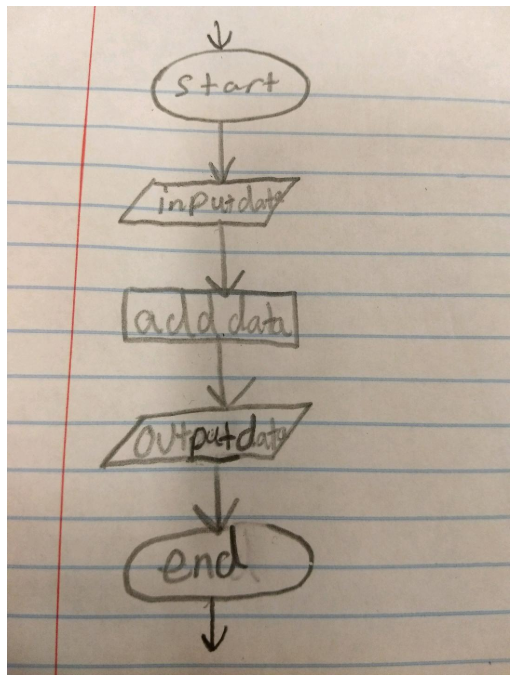 start
input data
add data
output data
end